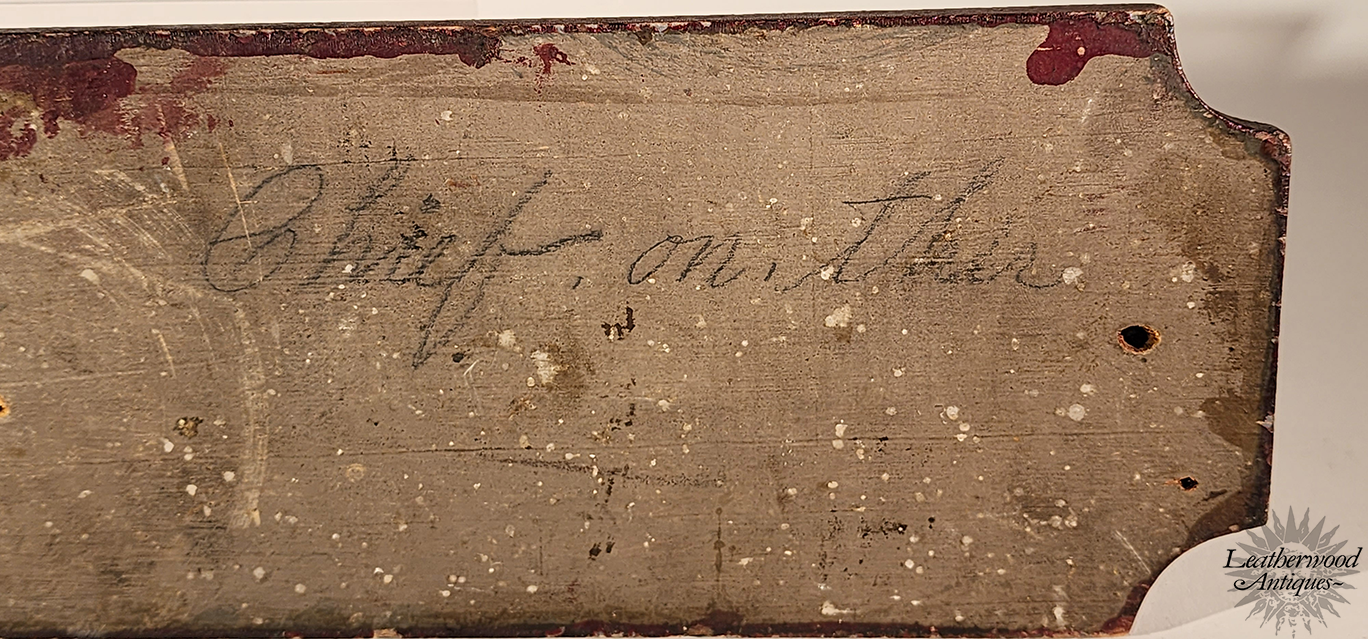 Chief. on. this.
Leatherwood
Antiques~